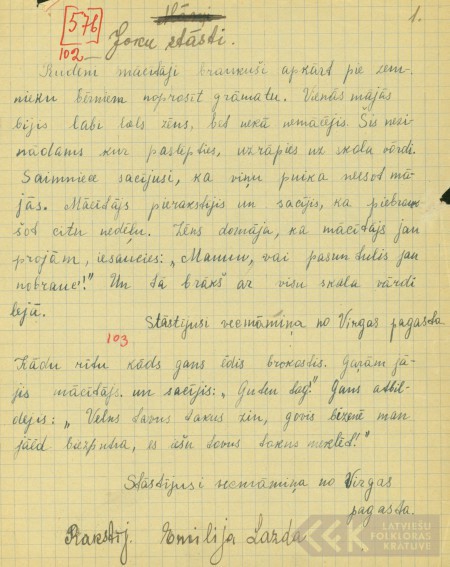 576
1.
102
Joku stāsti.
Rudenī mācītāji braukuši apkārt pie zem-
nieku bērniem noprosīt grāmatu. Vienās mājās
bijis labi liels zēns, bet nekā nemācējis. Šis nezi-
nādams kur paslēpties, uzrāpies uz skalu vārdi.
Saimniece sacījusi, ka viņu puika neesot mā-
jās. Mācītājs pierakstījis un sacījis, ka piebrauk-
šot citu nedēļu. Zēns domāja, ka mācītājs jau
projām, iesaucies: „Mammu, vai pasun tulis jau
nobrauc!" Un tā brākš ar visu skalu vārdi
lejā.
Stāstījusi vecmāmiņa no Virgas pagasta
103
Kādu rītu kāds gans ēdis brokastis. Gaŗām jā-
jis mācītājs un sacījis: „Guten tag!" Gans atbil-
dējis: „Velns tavus takus zin, govis bizenē man
jāēd biezputra, es iešu tavus takus meklēt!"
Stāstījusi vecmāmiņa no Virgas
pagasta.
Rakstīj. Emilija Lazda
LATVIEŠU
FOLKLORAS
KRATUVE